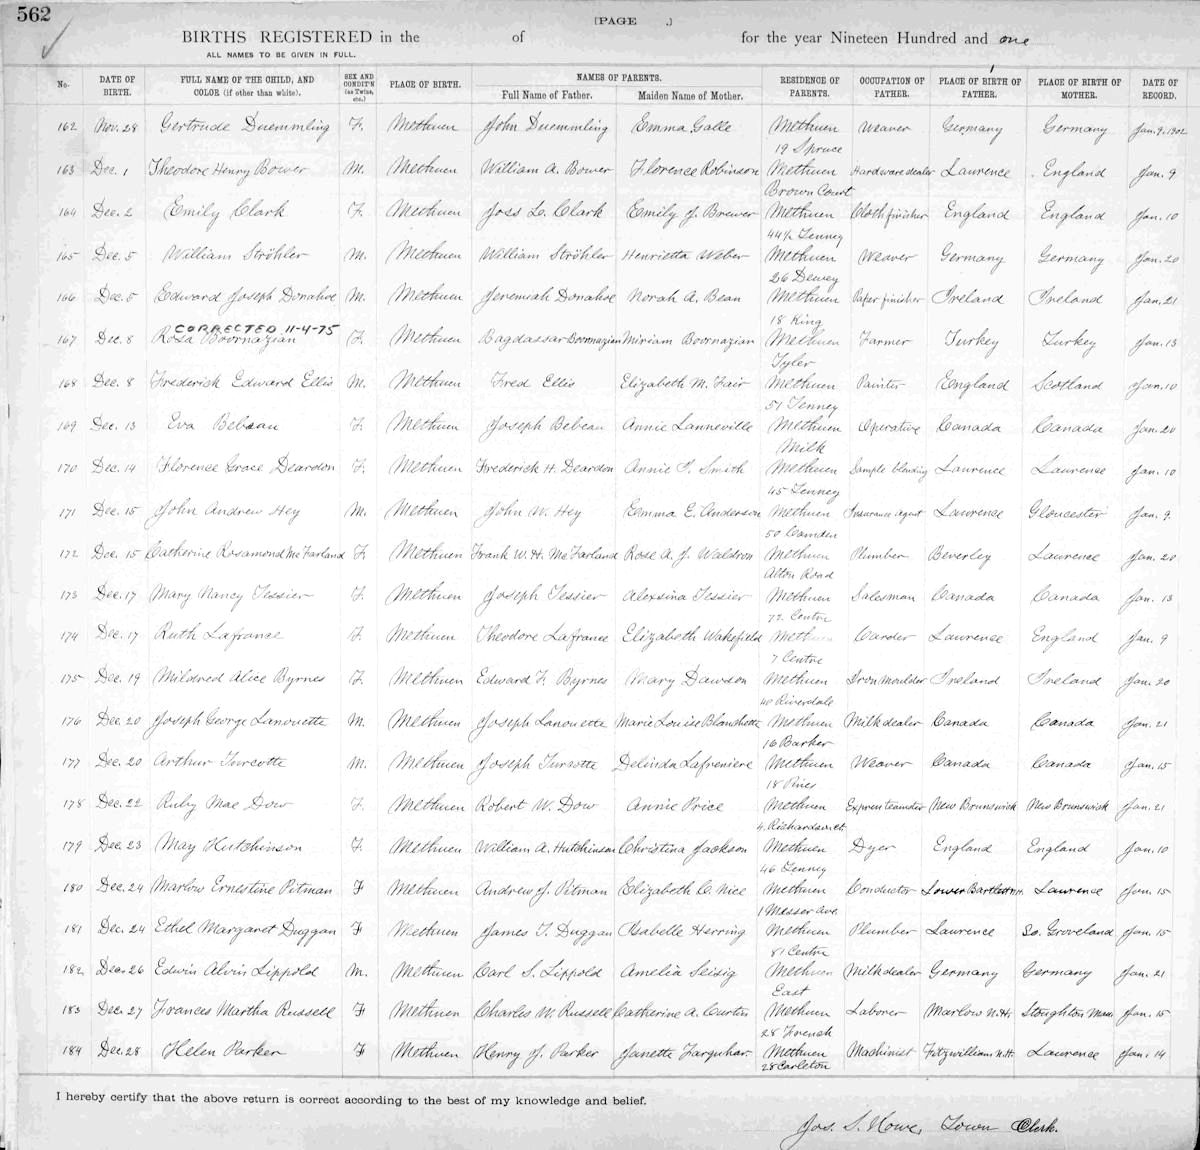 562
[PAGE .]
BIRTHS REGISTERED in the of for the year Nineteen Hundred and one
ALL NAMES TO BE GIVEN IN FULL.
No. DATE OF BIRTH. FULL NAME OF THE CHILD, AND COLOR (if other than white). SEX AND CONDIT'N (as Twins, etc.) PLACE OF BIRTH. NAMES OF PARENTS. Full Name of Father. Maiden Name of Mother. RESIDENCE OF PARENTS. OCCUPATION OF FATHER. PLACE OF BIRTH OF FATHER. PLACE OF BIRTH OF MOTHER. DATE OF RECORD.
162 Nov. 28 Gertrude Duemmling F. Methuen John Duemmling Emma Galle Methuen Weaver Germany Germany Jan. 9. 1902
19 Spruce
163 Dec. 1 Theodore Henry Bower M. Methuen William A. Bower Florence Robinson Methuen Hardware dealer Lawrence England Jan. 9
Brown Court
164 Dec. 2 Emily Clark F. Methuen Joss L. Clark Emily J. Brewer Methuen Cloth finisher England England Jan. 10
44½ Tenney
165 Dec. 5 William Ströhler M. Methuen William Ströhler Henrietta Weber Methuen Weaver Germany Germany Jan. 20
26 Dewey
166 Dec. 5 Edward Joseph Donahoe M. Methuen Jeremiah Donahoe Norah A. Bean Methuen Paper finisher Ireland Ireland Jan. 21
18 King
CORRECTED 11-4-75
167 Dec. 8 Rosa Boornazian F. Methuen Bagdassar Boornazian Miriam Boornazian Methuen Farmer Turkey Turkey Jan. 13
Tyler
168 Dec. 8 Frederick Edward Ellis M. Methuen Fred Ellis Elizabeth M. Fair Methuen Painter England Scotland Jan. 10
51 Tenney
169 Dec. 13 Eva Bebeau F. Methuen Joseph Bebeau Annie Lannsville Methuen Operative Canada Canada Jan. 20
Milk
170 Dec. 14 Florence Grace Deardon F. Methuen Frederick H. Deardon Annie T. Smith Methuen Sample blending Lawrence Lawrence Jan. 10
45 Tenney
171 Dec. 15 John Andrew Hey M. Methuen John W. Hey Emma E. Anderson Methuen Insurance agent Lawrence Gloucester Jan. 9.
50 Camden
172 Dec. 15 Catherine Rosamond McFarland F. Methuen Frank W. H. McFarland Rose A. J. Waldron Methuen Plumber Beverley Lawrence Jan. 20
Alton Road
173 Dec. 17 Mary Nancy Tessier F. Methuen Joseph Tessier Alexsina Tessier Methuen Salesman Canada Canada Jan. 13
72 Centre
174 Dec. 17 Ruth Lafrance F. Methuen Theodore Lafrance Elizabeth Wakefield Methuen Carder Lawrence England Jan. 9
7 Centre
175 Dec. 19 Mildred Alice Byrnes F. Methuen Edward F. Byrnes Mary Dawson Methuen Iron Moulder Ireland Ireland Jan. 20
40 Riverdale
176 Dec. 20 Joseph George Lanouette M. Methuen Joseph Lanouette Marie Louise Blanchette Methuen Milk dealer Canada Canada Jan. 21
16 Barker
177 Dec. 20 Arthur Turcotte M. Methuen Joseph Turcotte Delinda Lafreniere Methuen Weaver Canada Canada Jan. 15
18 Pines
178 Dec. 22 Ruby Mae Dow F. Methuen Robert W. Dow Annie Price Methuen Express teamster New Brunswick New Brunswick Jan. 21
4 Richardson ct.
179 Dec. 23 May Hutchinson F. Methuen William A. Hutchinson Christina Jackson Methuen Dyer England England Jan. 10
46 Tenney
180 Dec. 24 Marlow Ernestine Pitman F Methuen Andrew J. Pitman Elizabeth C. Nice Methuen Conductor Lower Bartlett N.H. Lawrence Jan. 15
1 Messer Ave.
181 Dec. 24 Ethel Margaret Duggan F Methuen James T. Duggan Isabelle Herring Methuen Plumber Lawrence So. Groveland Jan. 15
81 Centre
182 Dec. 26 Edwin Alvin Lippold M. Methuen Carl S. Lippold Amelia Seisig Methuen Milk dealer Germany Germany Jan. 21
East
183 Dec. 27 Frances Martha Russell F Methuen Charles W. Russell Catherine A. Curtin Methuen Laborer Marlow N.H. Stoughton Mass Jan. 15
28 French
184 Dec. 28 Helen Parker F Methuen Henry J. Parker Janette Farquhar. Methuen Machinist Fitzwilliam N.H. Lawrence Jan. 14
28 Carleton
I hereby certify that the above return is correct according to the best of my knowledge and belief.
Jos. S. Howe, Town Clerk.